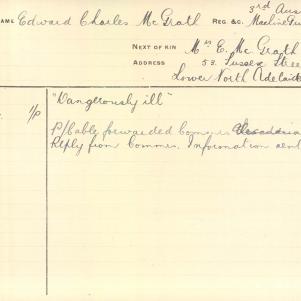 NAME Edward Charles McGrath REG. &C. 3rd Aus
NEXT OF KIN Mrs E. McGrath
ADDRESS 53 Sussex Stree
Lower North Adelaid
1/p "Dangerously ill"
P/6able forwarded Commrs
Reply from Commrs. Information sent